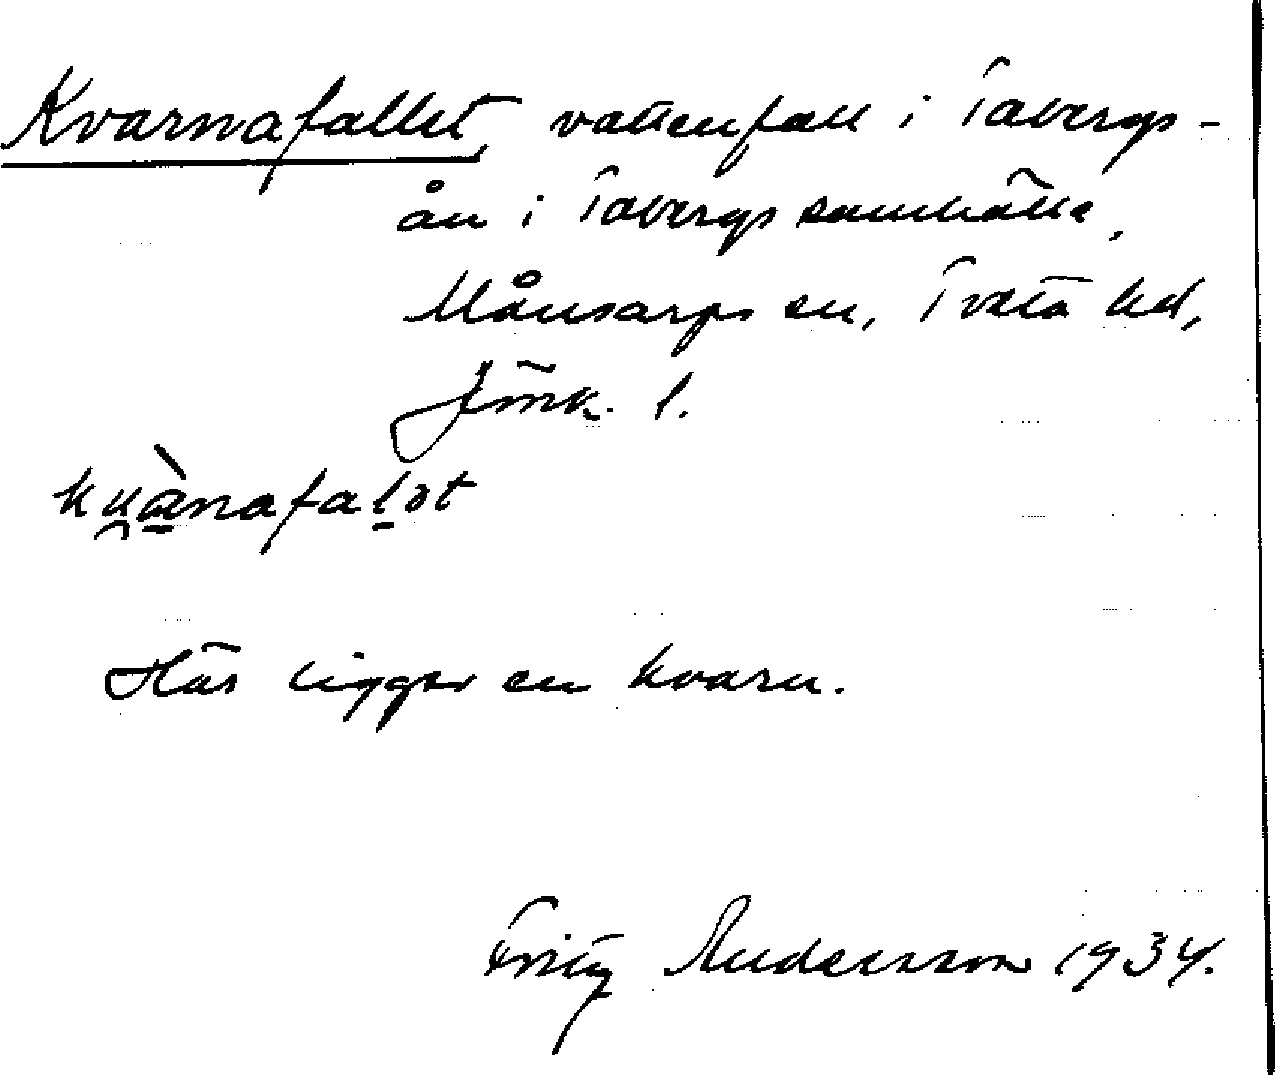 Kvarnafallet, vattenfall i Tabergs-
ån i Tabergs samhälle,
Månsarps sn, Tveta hd,
Jönk. l.
Här ligger en kvarn.
Fritz Andersson 1934.